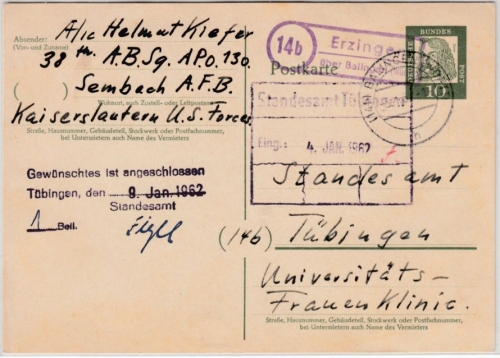 Absender:
(Vor- und Zuname)
A/c Helmut Kiefer
38th A.B.Sq. APO. 130.
Sembach A.F.B.
Wohnort, auch Zustell- oder Leitpostamt
Kaiserslautern U.S. Forces
Straße, Hausnummer, Gebäudeteil, Stockwerk oder Postfachnummer,
bei Untermietern auch Name des Vermieters
Gewünschtes ist angeschlossen
Tübingen, den 9. Jan. 1962
Standesamt
1 Beil.
14b
Erzingen
über Balingen
DEUTSCHE BUNDES POST
10
Postkarte
Standesamt Tübingen
Eing.: 4. JAN. 1962
Standesamt
(14b) Tübingen
Universitäts-
Frauenklinic.
Straße, Hausnummer, Gebäudeteil, Stockwerk oder Postfachnummer,
bei Untermietern auch Name des Vermieters